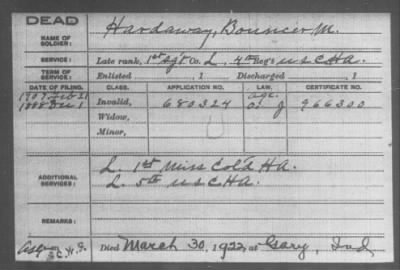 DEAD
NAME OF SOLDIER: Hardaway, Bouncer M.
SERVICE: Late rank, 1st Sgt Co. L, 4th Reg't U S C H A.
TERM OF SERVICE: Enlisted , 1 Discharged , 1
DATE OF FILING. CLASS. APPLICATION NO. LAW. CERTIFICATE NO.
1907 Feb 21 age.
1888 Dec 1 Invalid, 680324 966300
Widow,
Minor,
ADDITIONAL SERVICES: L. 1st Miss Col'd H A.
L. 5th U S C H A.
REMARKS:
Died March 30, 1922, at Gary, Ind